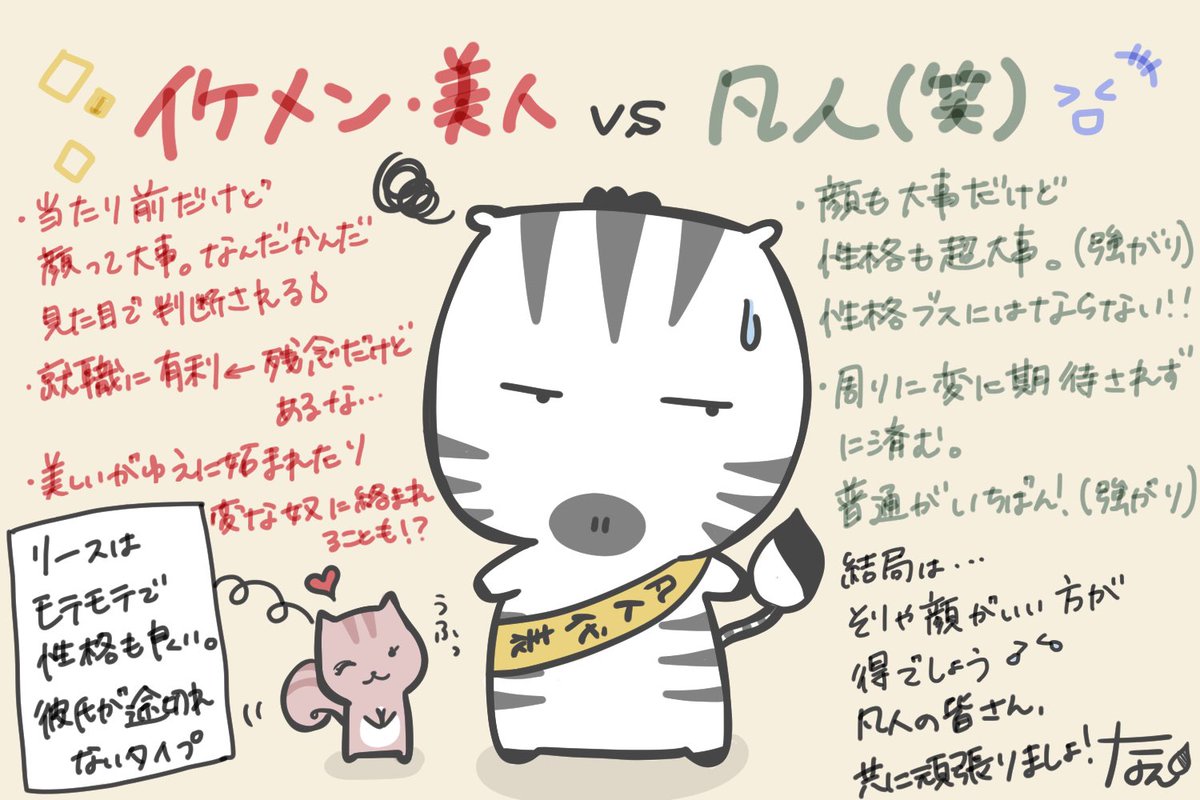 イケメン・美人 vs 凡人(笑)
・当たり前だけど
顔って大事。なんだかんだ
見た目で判断される
・就職に有利←残念だけど
あるな…
・美しいがゆえに妬まれたり
変な奴に絡まれ
ることも!?
リースは
モテモテで
性格も良い。
彼氏が途切れ
ないタイプ
うふっ
凡人代表
・顔も大事だけど
性格も超大事。(強がり)
性格ブスにはならない!!
・周りに変に期待されず
に済む。
普通がいちばん!(強がり)
結局は…
そりゃ顔がいい方が
得でしょう
凡人の皆さん、
共に頑張りましょ!
なえ